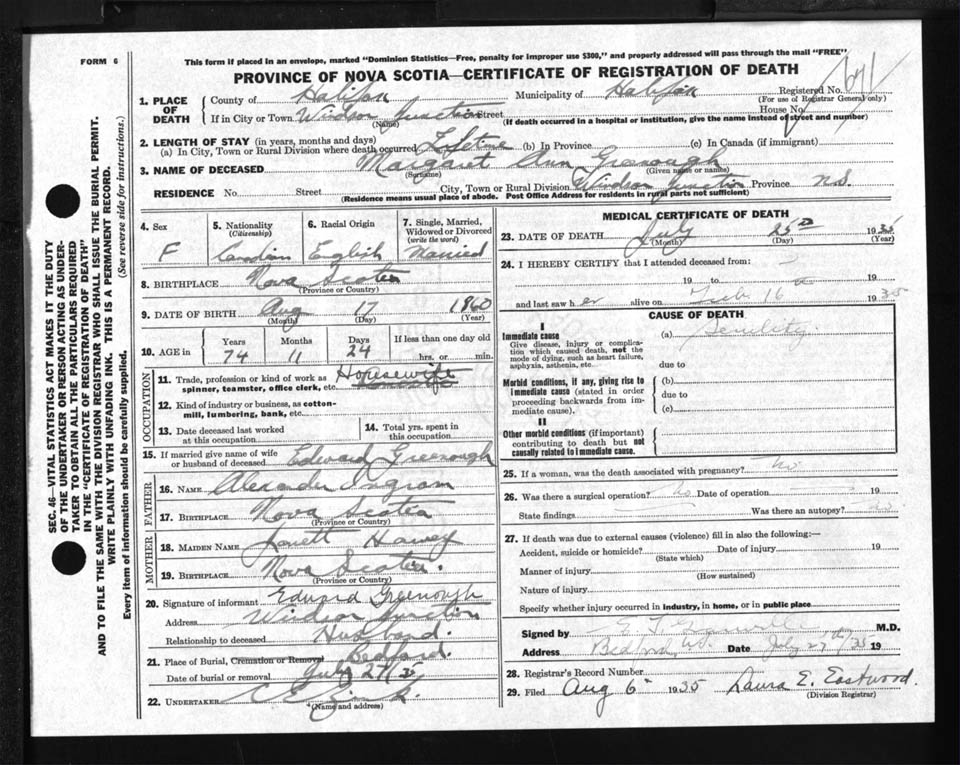 FORM 6
This form if placed in an envelope, marked "Dominion Statistics—Free, penalty for improper use $300," and properly addressed will pass through the mail "FREE"
PROVINCE OF NOVA SCOTIA—CERTIFICATE OF REGISTRATION OF DEATH
SEC. 46—VITAL STATISTICS ACT MAKES IT THE DUTY
OF THE UNDERTAKER OR PERSON ACTING AS UNDER-
TAKER TO OBTAIN ALL THE PARTICULARS REQUIRED
IN THE "CERTIFICATE OF REGISTRATION OF DEATH"
AND TO FILE THE SAME WITH THE DIVISION REGISTRAR WHO SHALL ISSUE THE BURIAL PERMIT.
WRITE PLAINLY WITH UNFADING INK. THIS IS A PERMANENT RECORD.
Every item of information should be carefully supplied. (See reverse side for instructions.)
Registered No.
(For use of Registrar General only)
1. PLACE OF DEATH County of Halifax Municipality of Halifax
If in City or Town Windsor Junction Street House No.
(Name) (If death occurred in a hospital or institution, give the name instead of street and number)
2. LENGTH OF STAY (in years, months and days)
(a) In City, Town or Rural Division where death occurred Lifetime (b) In Province (c) In Canada (if immigrant)
3. NAME OF DECEASED Margaret Ann Greenough
(Surname) (Given name or names)
RESIDENCE No. Street City, Town or Rural Division Windsor Junction Province N.S.
(Residence means usual place of abode. Post Office Address for residents in rural parts not sufficient)
4. Sex F
5. Nationality (Citizenship) Canadian
6. Racial Origin English
7. Single, Married, Widowed or Divorced (write the word) Married
8. BIRTHPLACE Nova Scotia
(Province or Country)
9. DATE OF BIRTH Aug 17 1860
(Month) (Day) (Year)
10. AGE in Years 74 Months 11 Days 24 If less than one day old hrs. or min.
OCCUPATION
11. Trade, profession or kind of work as spinner, teamster, office clerk, etc. Housewife
12. Kind of industry or business, as cotton-mill, lumbering, bank, etc.
13. Date deceased last worked at this occupation
14. Total yrs. spent in this occupation
15. If married give name of wife or husband of deceased Edward Greenough
FATHER
16. Name Alexander Ingram
17. Birthplace Nova Scotia
(Province or Country)
MOTHER
18. Maiden Name Harvey
19. Birthplace Nova Scotia.
(Province or Country)
20. Signature of informant Edward Greenough
Address Windsor Junction
Relationship to deceased Husband.
21. Place of Burial, Cremation or Removal Bedford.
Date of burial or removal July 27/35
22. Undertaker
(Name and address)
MEDICAL CERTIFICATE OF DEATH
23. DATE OF DEATH July 25th 1935
(Month) (Day) (Year)
24. I HEREBY CERTIFY that I attended deceased from:
19 to 19
and last saw her alive on Feb 16 1935
CAUSE OF DEATH
I
Immediate cause
Give disease, injury or complication which caused death, not the mode of dying, such as heart failure, asphyxia, asthenia, etc.
(a) Senility.
due to
Morbid conditions, if any, giving rise to immediate cause (stated in order proceeding backwards from immediate cause).
(b)
due to
(c)
II
Other morbid conditions (if important) contributing to death but not causally related to immediate cause.
25. If a woman, was the death associated with pregnancy? No
26. Was there a surgical operation? No Date of operation 19
State findings Was there an autopsy? No
27. If death was due to external causes (violence) fill in also the following:—
Accident, suicide or homicide? Date of injury 19
(State which)
Manner of injury
(How sustained)
Nature of injury
Specify whether injury occurred in industry, in home, or in public place
Signed by M.D.
Address Bedford, Date July 27th/35 19
28. Registrar's Record Number
29. Filed Aug 6 1935 Laura E. Eastwood.
(Division Registrar)